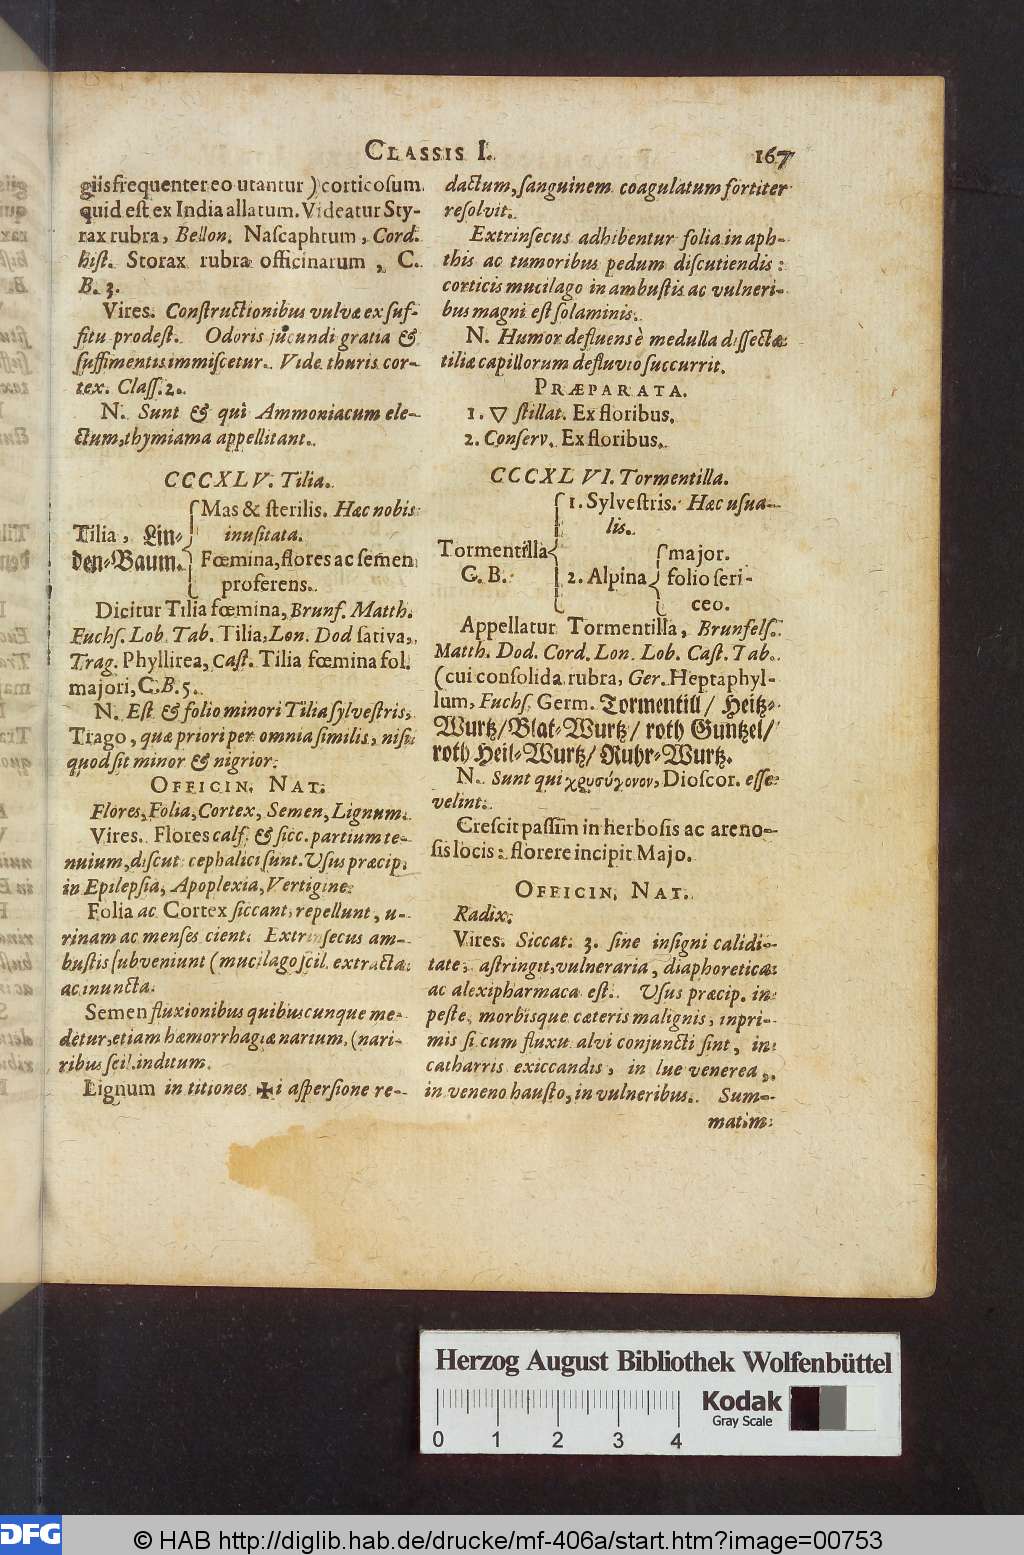 CLASSIS I. 167
giis frequenter eo utantur) corticosum
quid est ex India allatum. Videatur Sty-
rax rubra, Bellon. Nascaphtum, Cord.
hist. Storax rubra officinarum, C.
B. 3.
Vires. Constructionibus vulvæ ex suf-
fitu prodest. Odoris jucundi gratia &
suffimentis immiscetur. Vide thuris cor-
tex. Class. 2.
N. Sunt & qui Ammoniacum ele-
ctum, thymiama appellitant.
CCCXLV. Tilia.
Mas & sterilis. Hæc nobis
Tilia, Lin- inusitata.
den-Baum. Fœmina, flores ac semen
proferens.
Dicitur Tilia fœmina, Brunf. Matth.
Fuchs. Lob. Tab. Tilia, Lon. Dod sativa,
Trag. Phyllirea, Cast. Tilia fœmina fol.
majori, C. B. 5.
N. Est & folio minori Tilia sylvestris,
Trago, quæ priori per omnia similis, nisi
quod sit minor & nigrior.
OFFICIN. NAT.
Flores, Folia, Cortex, Semen, Lignum.
Vires. Flores calf. & sicc. partium te-
nuium, discut. cephalici sunt. Usus præcip.
in Epilepsia, Apoplexia, Vertigine.
Folia ac Cortex siccant, repellunt, u-
rinam ac menses cient. Extrinsecus am-
bustis subveniunt (mucilago scil. extracta
ac inuncta.
Semen fluxionibus quibuscunque me-
detur, etiam hæmorrhagiæ narium, (nari-
ribus scil. inditum.
Lignum in titiones ✠i aspersione re-
dactum, sanguinem coagulatum fortiter
resolvit.
Extrinsecus adhibentur folia in aph-
this ac tumoribus pedum discutiendis:
corticis mucilago in ambustis ac vulneri-
bus magni est solaminis.
N. Humor defluens è medulla dissectæ
tiliæ capillorum defluvio succurrit.
PRÆPARATA.
1. ▽ stillat. Ex floribus.
2. Conserv. Ex floribus.
CCCXLVI. Tormentilla.
1. Sylvestris. Hæc usua-
lis.
Tormentilla major.
C. B. 2. Alpina folio seri-
ceo.
Appellatur Tormentilla, Brunfels.
Matth. Dod. Cord. Lon. Lob. Cast. Tab.
(cui consolida rubra, Ger. Heptaphyl-
lum, Fuchs. Germ. Tormentill / Heitz-
Wurtz / Blat-Wurtz / roth Guntzel /
roth Heil-Wurtz / Ruhr-Wurtz.
N. Sunt qui χρυσόγονον, Dioscor. esse
velint.
Crescit passim in herbosis ac areno-
sis locis: florere incipit Majo.
OFFICIN. NAT.
Radix.
Vires. Siccat. 3. sine insigni calidi-
tate, astringit, vulneraria, diaphoretica
ac alexipharmaca est. Usus præcip. in
peste, morbisque cæteris malignis, inpri-
mis si cum fluxu alvi conjuncti sint, in
catharris exiccandis, in lue venerea,
in veneno hausto, in vulneribus. Sum-
matim
Herzog August Bibliothek Wolfenbüttel
Kodak
Gray Scale
0 1 2 3 4
DFG © HAB http://diglib.hab.de/drucke/mf-406a/start.htm?image=00753